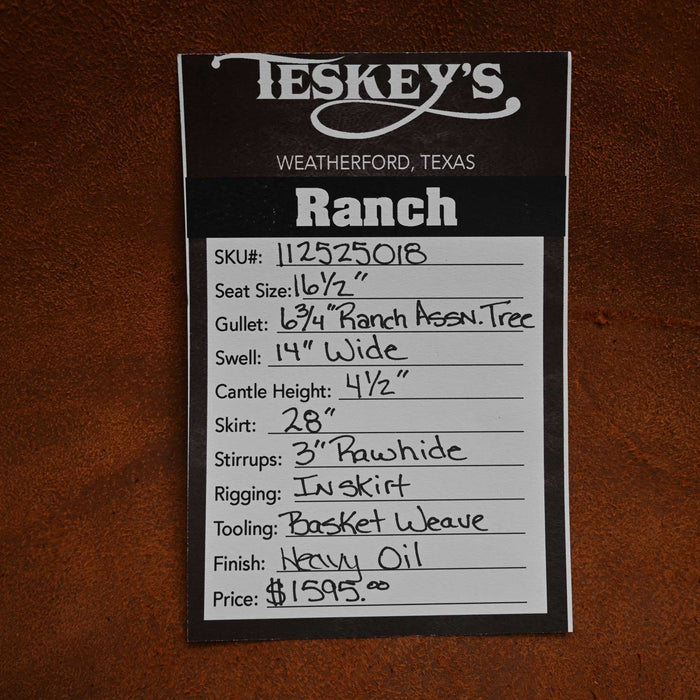 TESKEY'S
WEATHERFORD, TEXAS
Ranch
SKU#: 112525018
Seat Size: 16 1/2"
Gullet: 6 3/4" Ranch Assn. Tree
Swell: 14" Wide
Cantle Height: 4 1/2"
Skirt: 28"
Stirrups: 3" Rawhide
Rigging: Inskirt
Tooling: Basket Weave
Finish: Heavy Oil
Price: $1595.00